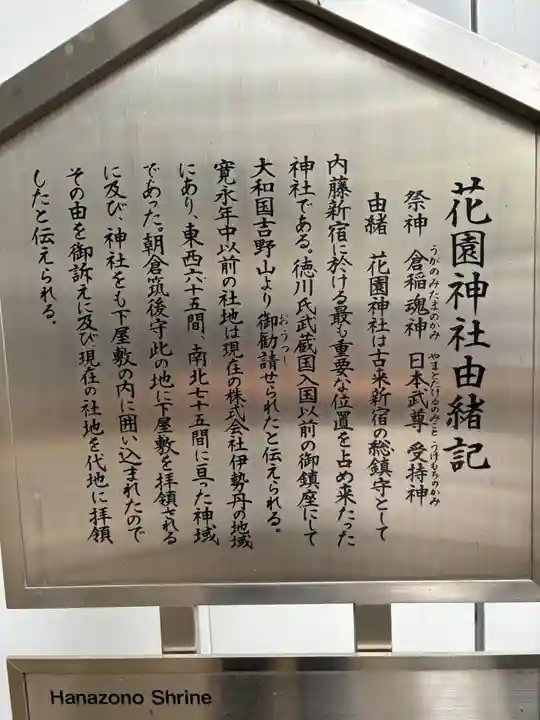 花園神社由緒記
祭神 倉稲魂神 日本武尊 受持神
うがのみたまのかみ やまとたけるのみこと うけもちのかみ
由緒 花園神社は古来新宿の総鎮守として
内藤新宿に於ける最も重要な位置を占め来たった
神社である。徳川氏武蔵国入国以前の御鎮座にして
大和国吉野山より御勧請せられたと伝えられる。
おうつし
寛永年中以前の社地は現在の株式会社伊勢丹の地域
にあり、東西六十五間、南北七十五間に亘った神域
であった。朝倉筑後守此の地に下屋敷を拝領される
に及び、神社をも下屋敷の内に囲い込まれたので
その由を御訴えに及び現在の社地を代地に拝領
したと伝えられる。
Hanazono Shrine